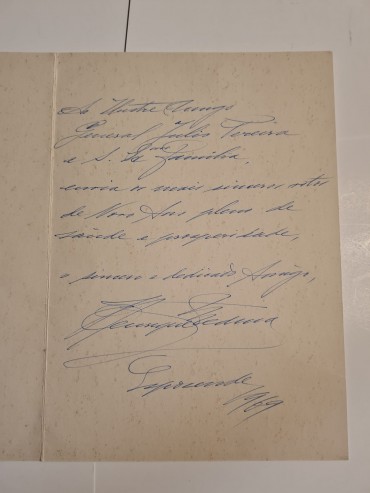 Ao Ilustre Amigo
General Júlio Pereira
e S. Família,
envia os mais sinceros votos
de Novo Ano pleno de
saúde e prosperidade,
o sincero e dedicado Amigo,
1969